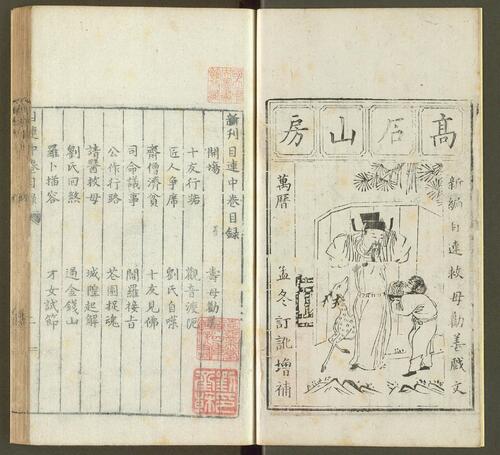 高石山房
新編目連救母勸善戲文
萬曆
孟冬訂訛增補
新刊目連中卷目錄
開塲 壽母勸
十友行路 觀音渡厄
匠人爭席 劉氏自嘆
齋僧濟貧 十友見佛
司命議事 閻羅接旨
公作行路 花園捉魂
請醫救母 城隍起解
劉氏回煞 過金錢山
羅卜描容 才女試節
目連中卷目錄